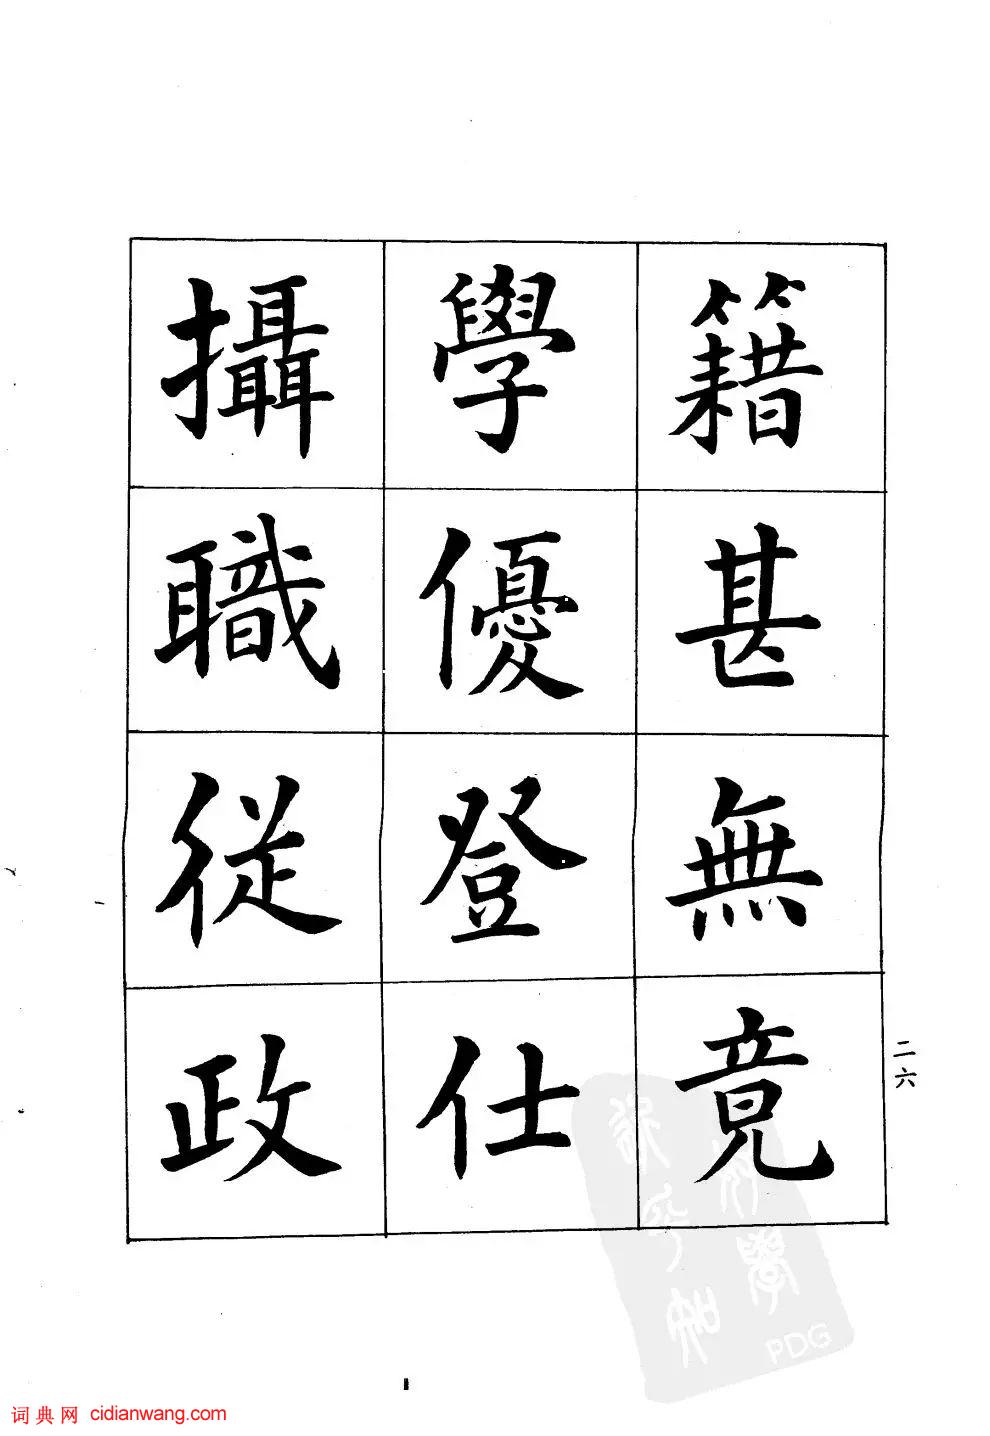 籍甚無竟
學優登仕
攝職從政
二六
PDG
词典网 cidianwang.com